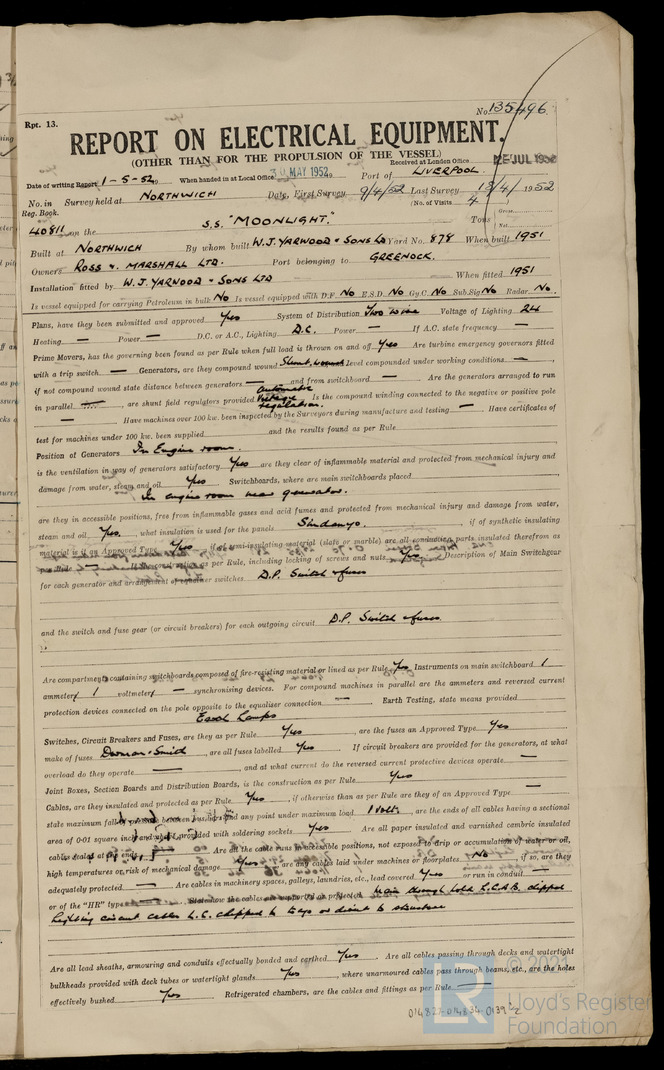 No. 135496.
Rpt. 13.
REPORT ON ELECTRICAL EQUIPMENT.
(OTHER THAN FOR THE PROPULSION OF THE VESSEL)
Received at London Office JUL 1952
Date of writing Report 1-5-52 When handed in at Local Office MAY 1952 Port of LIVERPOOL.
No. in Survey held at NORTHWICH Date, First Survey 9/4/52 Last Survey /4/1952
Reg. Book. (No. of Visits 4
40811 on the S.S. "MOONLIGHT." Tons Gross Net
Built at NORTHWICH By whom built W.J. YARWOOD & SONS LD Yard No. 878 When built 1951
Owners ROSS & MARSHALL LTD. Port belonging to GREENOCK.
Installation fitted by W. J. YARWOOD & SONS LTD When fitted 1951
Is vessel equipped for carrying Petroleum in bulk No Is vessel equipped with D.F. No E.S.D. No Gy.C. No Sub.Sig. No Radar. No.
Plans, have they been submitted and approved Yes System of Distribution Two wire Voltage of Lighting 24
Heating — Power — D.C. or A.C., Lighting D.C. Power — If A.C. state frequency —
Prime Movers, has the governing been found as per Rule when full load is thrown on and off Yes Are turbine emergency governors fitted
with a trip switch — Generators, are they compound wound Shunt wound level compounded under working conditions —
if not compound wound state distance between generators — and from switchboard — Are the generators arranged to run
in parallel —, are shunt field regulators provided Automatic Voltage regulation. Is the compound winding connected to the negative or positive pole
— Have machines over 100 kw. been inspected by the Surveyors during manufacture and testing — Have certificates of
test for machines under 100 kw. been supplied and the results found as per Rule
Position of Generators In Engine room.
is the ventilation in way of generators satisfactory Yes are they clear of inflammable material and protected from mechanical injury and
damage from water, steam and oil Yes Switchboards, where are main switchboards placed
In engine room near generator.
are they in accessible positions, free from inflammable gases and acid fumes and protected from mechanical injury and damage from water,
steam and oil Yes, what insulation is used for the panels Sindanyo. if of synthetic insulating
material is it an Approved Type Yes if of semi-insulating material (slate or marble) are all conducting parts insulated therefrom as
per Rule — Is the construction as per Rule, including locking of screws and nuts Yes Description of Main Switchgear
for each generator and arrangement of equaliser switches D.P. Switch & fuses
and the switch and fuse gear (or circuit breakers) for each outgoing circuit D.P. Switch & fuses
Are compartments containing switchboards composed of fire-resisting material or lined as per Rule Yes Instruments on main switchboard 1
ammeters 1 voltmeters — synchronising devices. For compound machines in parallel are the ammeters and reversed current
protection devices connected on the pole opposite to the equaliser connection — Earth Testing, state means provided
Earth Lamps
Switches, Circuit Breakers and Fuses, are they as per Rule Yes, are the fuses an Approved Type Yes
make of fuses Dorman & Smith, are all fuses labelled Yes If circuit breakers are provided for the generators, at what
overload do they operate —, and at what current do the reversed current protective devices operate —
Joint Boxes, Section Boards and Distribution Boards, is the construction as per Rule Yes
Cables, are they insulated and protected as per Rule Yes, if otherwise than as per Rule are they of an Approved Type —
state maximum fall of pressure between bus bars and any point under maximum load 1 Volt, are the ends of all cables having a sectional
area of 0·01 square inch and above provided with soldering sockets Yes Are all paper insulated and varnished cambric insulated
cables sealed at the ends — Are all the cable runs in accessible positions, not exposed to drip or accumulation of water or oil,
high temperatures or risk of mechanical damage Yes are any cables laid under machines or floorplates No if so, are they
adequately protected — Are cables in machinery spaces, galleys, laundries, etc., lead covered Yes or run in conduit —
or of the "HR" type — State how the cables are supported or protected Main through hold L.C.A.B. clipped
Lighting circuit cables L.C. clipped to trays or direct to structure
Are all lead sheaths, armouring and conduits effectually bonded and earthed Yes Are all cables passing through decks and watertight
bulkheads provided with deck tubes or watertight glands Yes, where unarmoured cables pass through beams, etc., are the holes
effectively bushed Yes Refrigerated chambers, are the cables and fittings as per Rule —
© 2021
Lloyd's Register
Foundation
LR